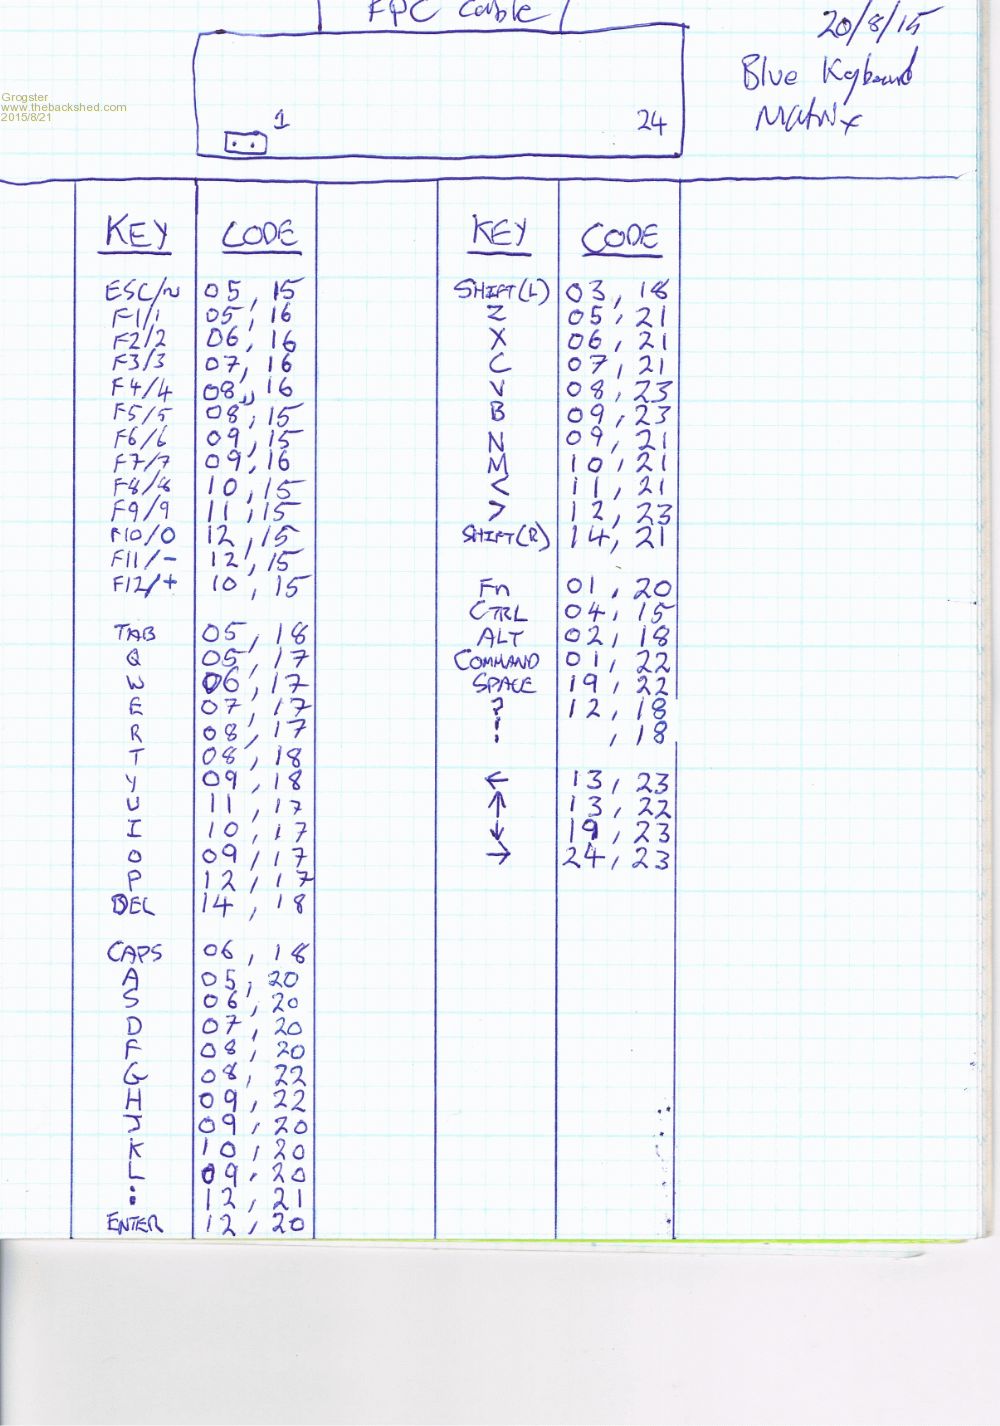 FPC Cable
20/8/15
Blue Kyboard
Matrix
Grogster
www.thebackshed.com
2015/8/21
1
24
KEY CODE
ESC/~ 05, 15
F1/1 05, 16
F2/2 06, 16
F3/3 07, 16
F4/4 08, 16
F5/5 08, 15
F6/6 09, 15
F7/7 09, 16
F8/8 10, 15
F9/9 11, 15
F10/0 12, 15
F11/- 12, 15
F12/+ 10, 15
TAB 05, 18
Q 05, 17
W 06, 17
E 07, 17
R 08, 17
T 08, 18
Y 09, 18
U 11, 17
I 10, 17
O 09, 17
P 12, 17
DEL 14, 18
CAPS 06, 18
A 05, 20
S 06, 20
D 07, 20
F 08, 20
G 08, 22
H 09, 22
J 09, 20
K 10, 20
L 09, 20
: 12, 21
ENTER 12, 20
KEY CODE
SHIFT(L) 03, 18
Z 05, 21
X 06, 21
C 07, 21
V 08, 23
B 09, 23
N 09, 21
M 10, 21
< 11, 21
> 12, 23
SHIFT(R) 14, 21
Fn 01, 20
CTRL 04, 15
ALT 02, 18
COMMAND 01, 22
SPACE 19, 22
? 12, 18
! , 18
← 13, 23
↑ 13, 22
↓ 19, 23
→ 24, 23